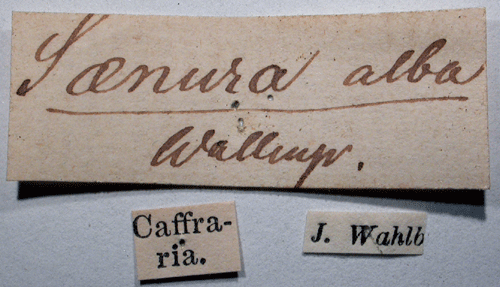 Sænura alba
Wallengr.
Caffra-
ria.
J. Wahlb